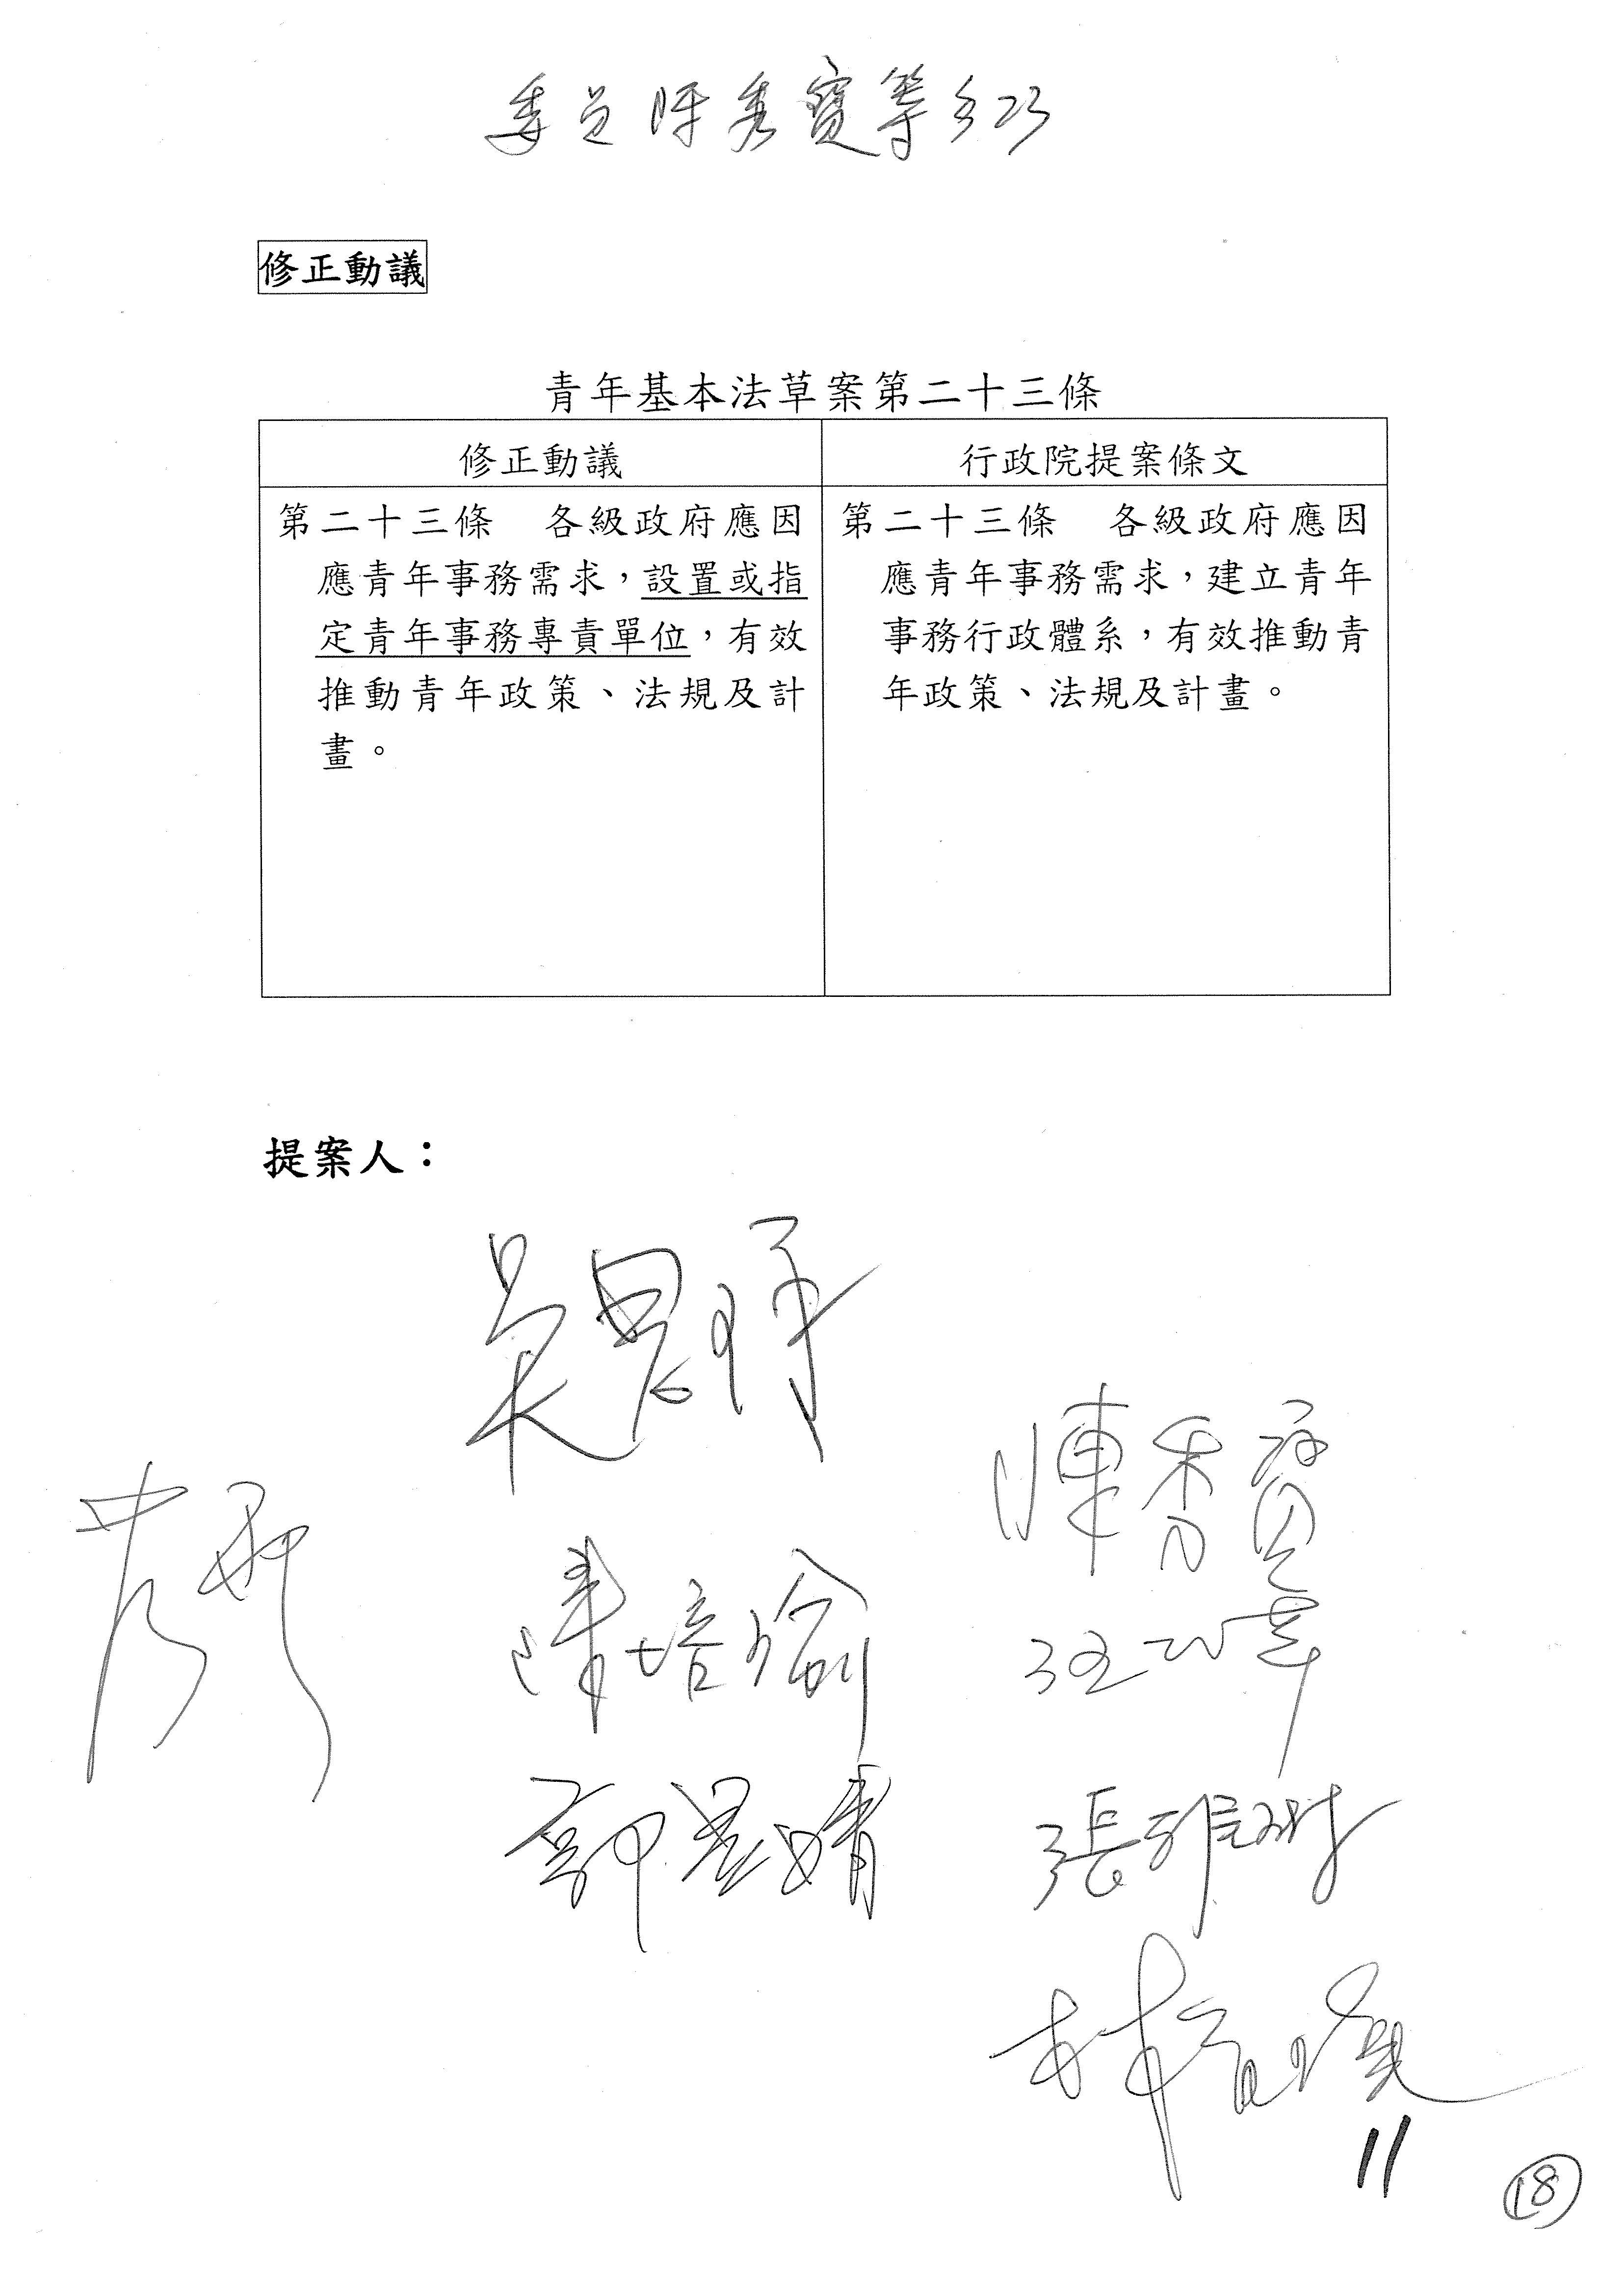 委員陳秀寶等 23
修正動議
青年基本法草案第二十三條
修正動議
行政院提案條文
第二十三條　各級政府應因
應青年事務需求，設置或指
定青年事務專責單位，有效
推動青年政策、法規及計
畫。
第二十三條　各級政府應因
應青年事務需求，建立青年
事務行政體系，有效推動青
年政策、法規及計畫。
提案人：
吳思瑤
陳秀寶
陳培瑜
郭昱晴
張雅琳
林宜瑾
11
18